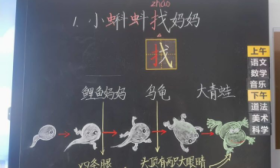 zhǎo
1.小蝌蚪找妈妈
找
鲤鱼妈妈 乌龟 大青蛙
四条腿
头顶有两大眼睛
上午
语文
数学
音乐
下午
道法
美术
科学